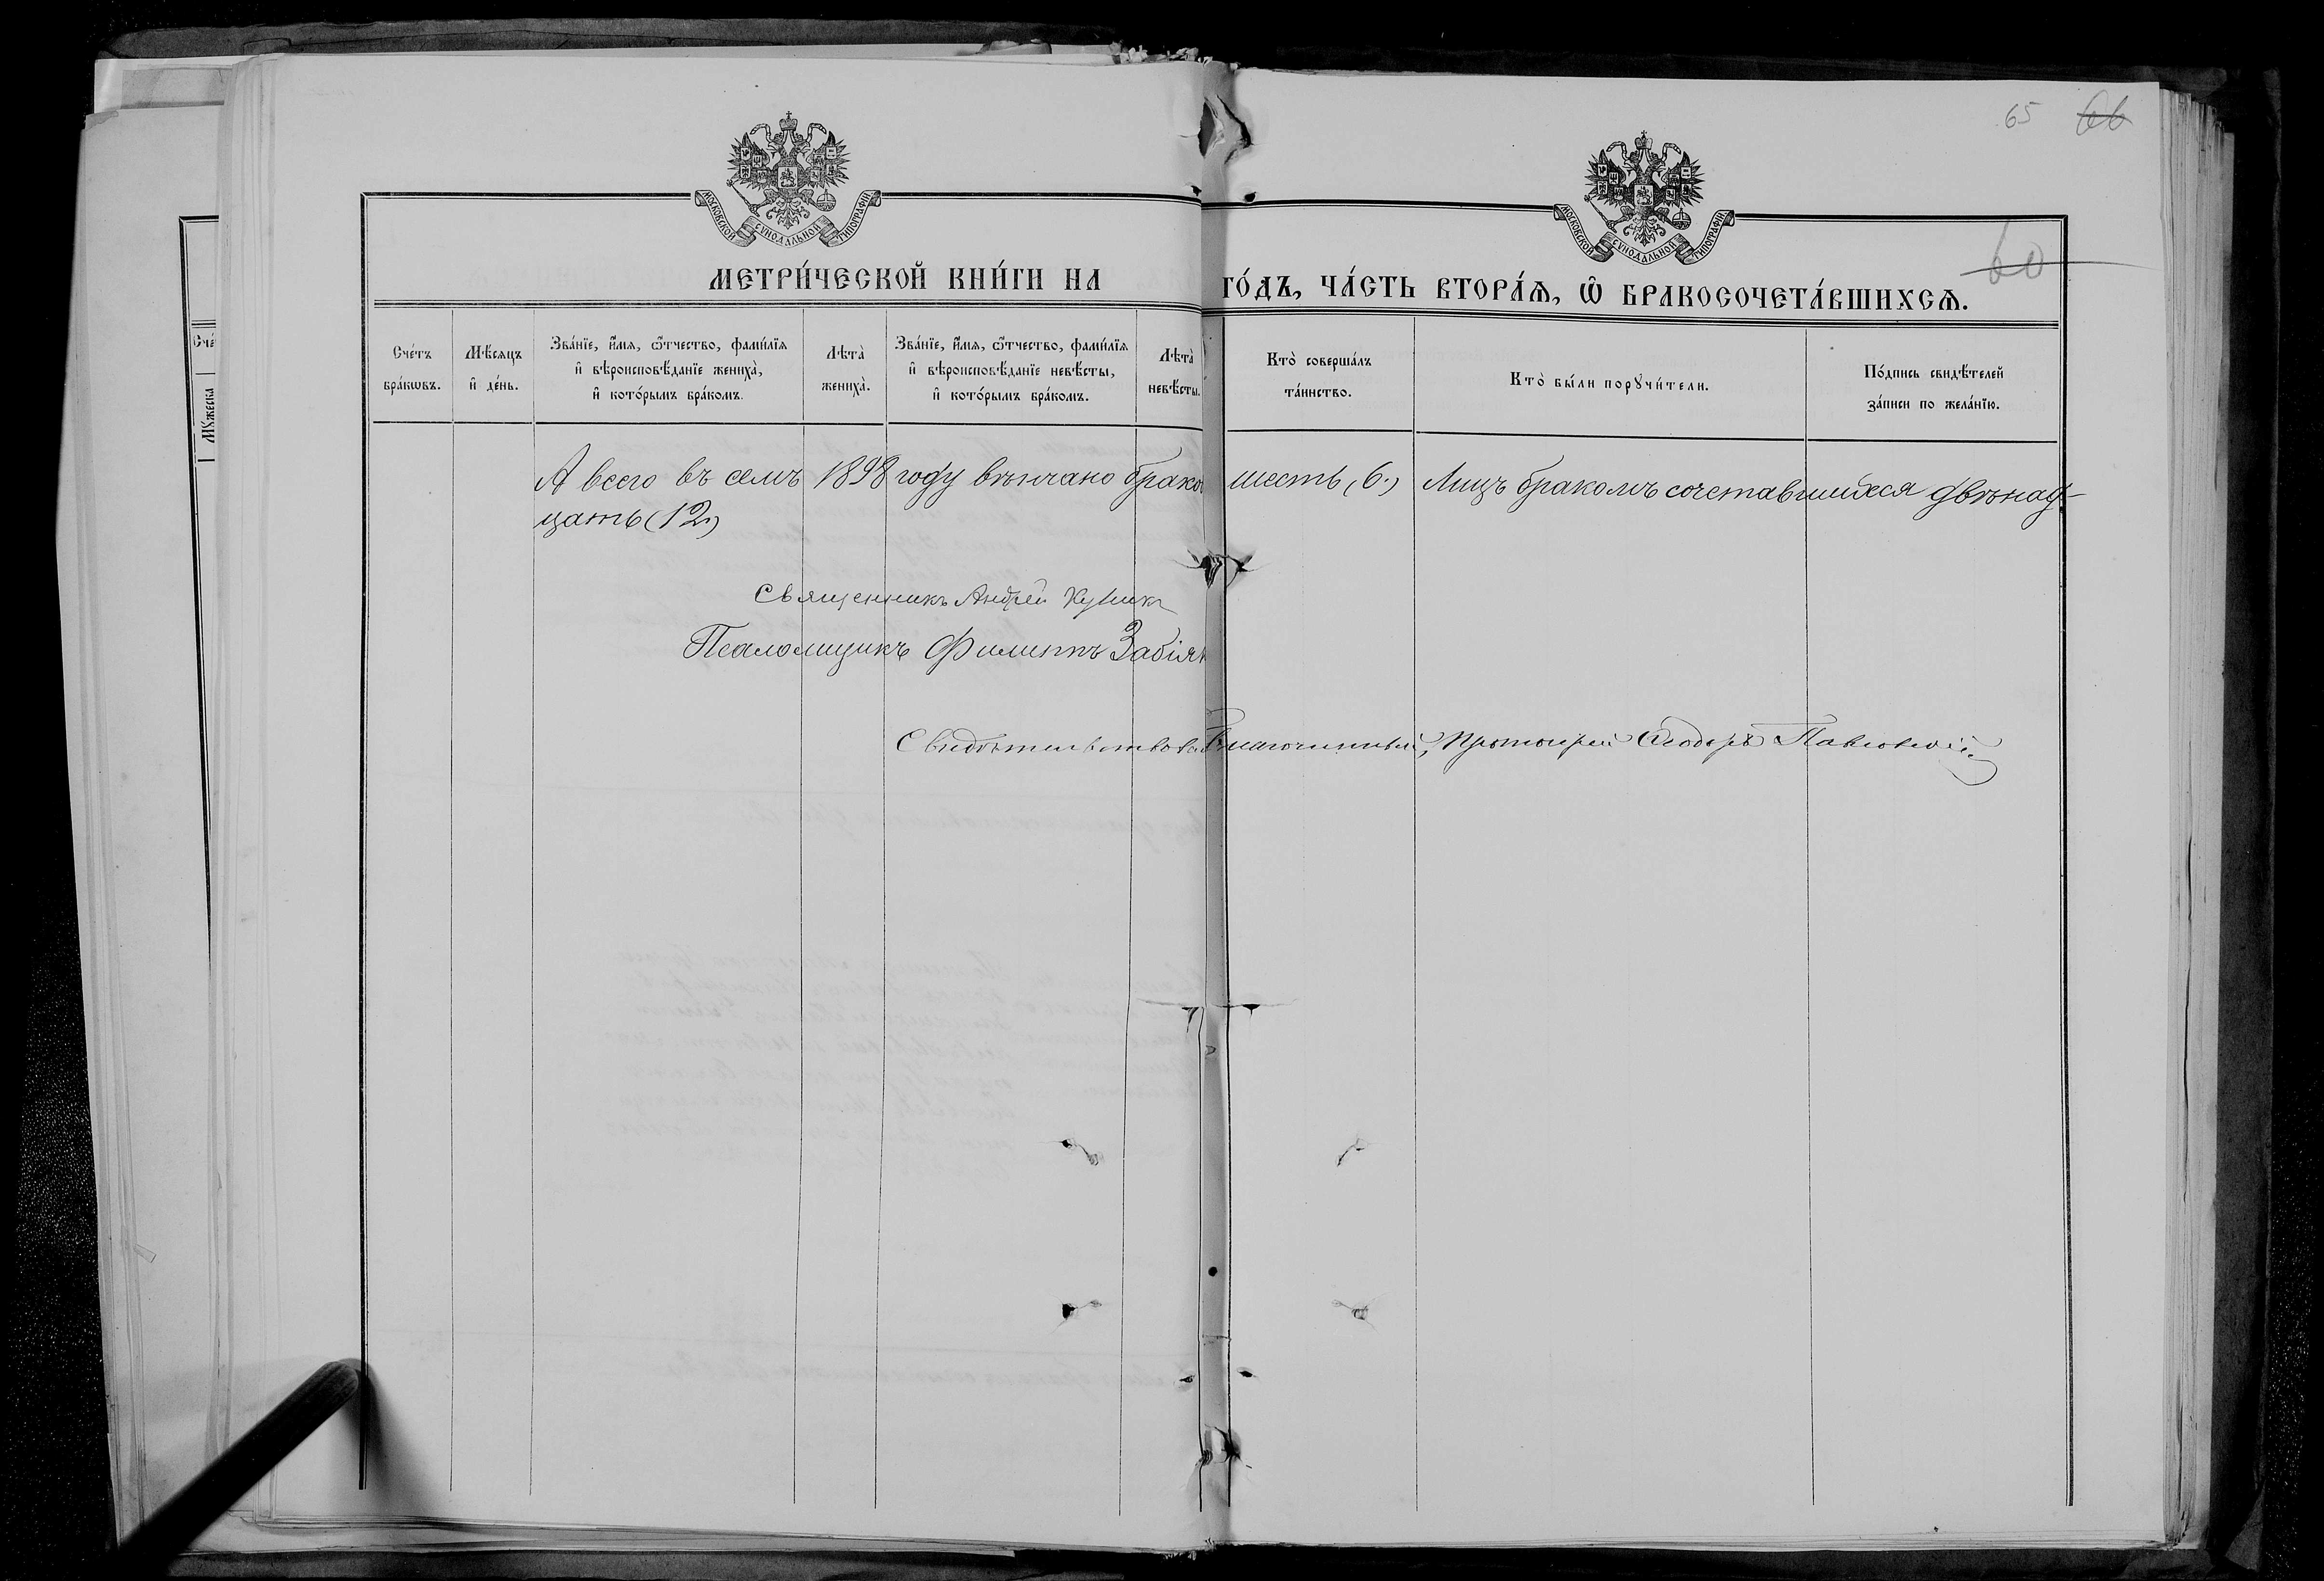 65 66
МОСКОВСКОЙ СѴНОДАЛЬНОЙ ТИПОГРАФІИ
МОСКОВСКОЙ СѴНОДАЛЬНОЙ ТИПОГРАФІИ
60
МЕТРИ́ЧЕСКОЙ КНИ́ГИ НА ГО́ДЪ, ЧА́СТЬ ВТОРА́Ѧ, Ѽ БРАКОСОЧЕТА́ВШИХСѦ.
Сче́тъ бра́кѡвъ.
Мѣ́сѧцъ и҆ де́нь.
Зва́нїе, и҆́мѧ, ѻ҆́тчество, фамн́лїѧ и҆ вѣроисповѣ́данїе жениха̀, и҆ кото́рымъ бра́комъ.
Лѣта̀ жениха̀.
Зва́нїе, и҆́мѧ, ѻ҆́тчество, фами́лїѧ и҆ вѣроисповѣ́данїе невѣ́сты, и҆ кото́рымъ бра́комъ.
Лѣта̀ невѣ́сты.
Кто̀ соверша́лъ та́инство.
Кто̀ бы́ли порꙋчи́тели.
По́дпись свидѣ́телей за́писи по жела́нїю.
Сче́
Мꙋжеска
А всего въ семъ 1898 году вѣнчано брако шесть (6.) Лицъ бракомъ сочетавшихся двѣнад-
цать (12.)
Священникъ Андрей
Псаломщикъ Филиппъ Забіяк
Свидѣтельствовалъ Благочинный, Протоіерей Ѳеодоръ Павловскій.